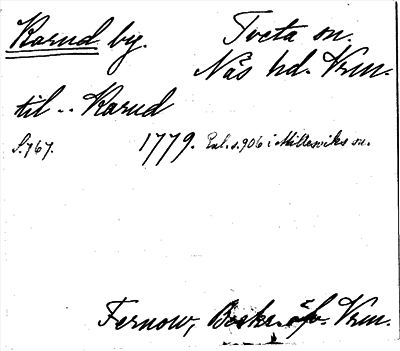 Karud by. Tveta sn.
Näs hd. Vrm.
til .. Karud
S.767. 1779. Enl. s. 906 i Millesviks sn.
Fernow, Beskr. öfv. Vrm.